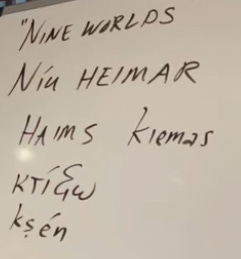 "NINE WORLDS
Níu HEIMAR
HAIMS kiemas
κτίζω
kṣén